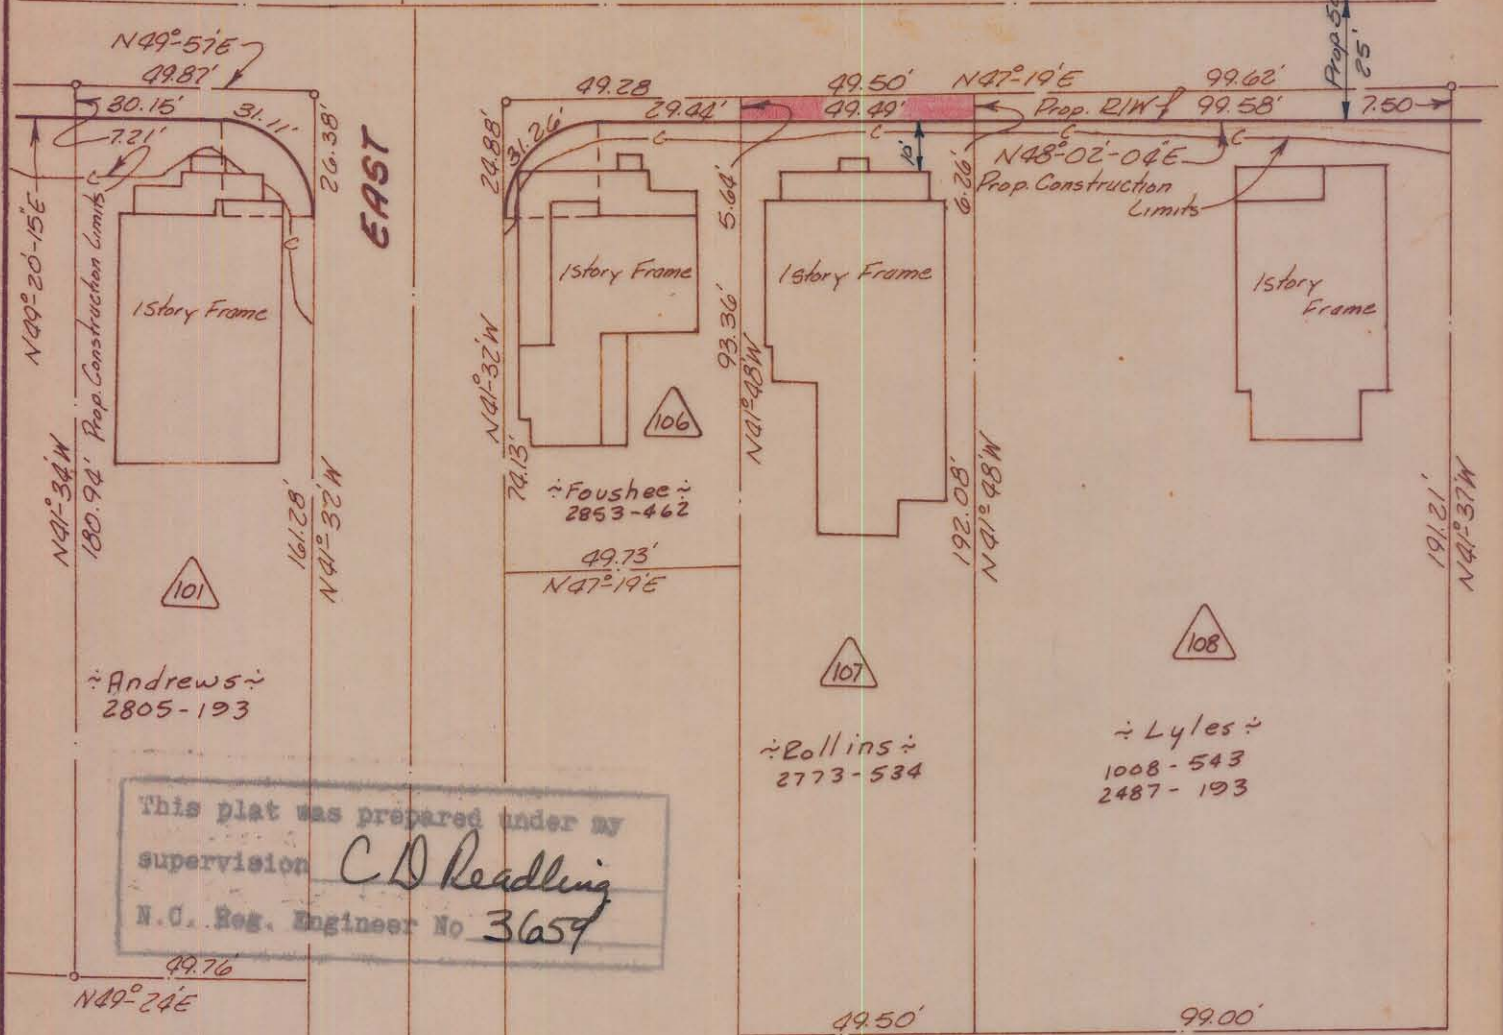 N49°-57'E
49.87'
30.15'
31.11'
7.21'
26.38'
EAST
N49°-20'-15"E
Prop. Construction Limits
C
C
1 Story Frame
N41°-34'W
180.94'
161.28'
N41°-32'W
101
÷Andrews÷
2805-193
49.76'
N49°-24'E
49.28
29.44'
24.88'
31.26'
C
1 Story Frame
N41°-32'W
74.13'
106
÷Foushee÷
2853-462
49.73'
N47°-19'E
49.50'
49.49'
C
10'
5.64'
93.36'
N41°-48'W
6.26'
1 Story Frame
192.08'
N41°-48'W
107
÷Rollins÷
2773-534
49.50'
N47°-19'E
99.62'
Prop. 50'
25'
Prop. R/W
99.58'
7.50
C
C
N48°-02'-04"E
Prop. Construction
Limits
1 Story
Frame
191.21'
N41°-37'W
108
÷Lyles÷
1008-543
2487-193
99.00'
This plat was prepared under my
supervision C D Readling
N.C. Reg. Engineer No 3659